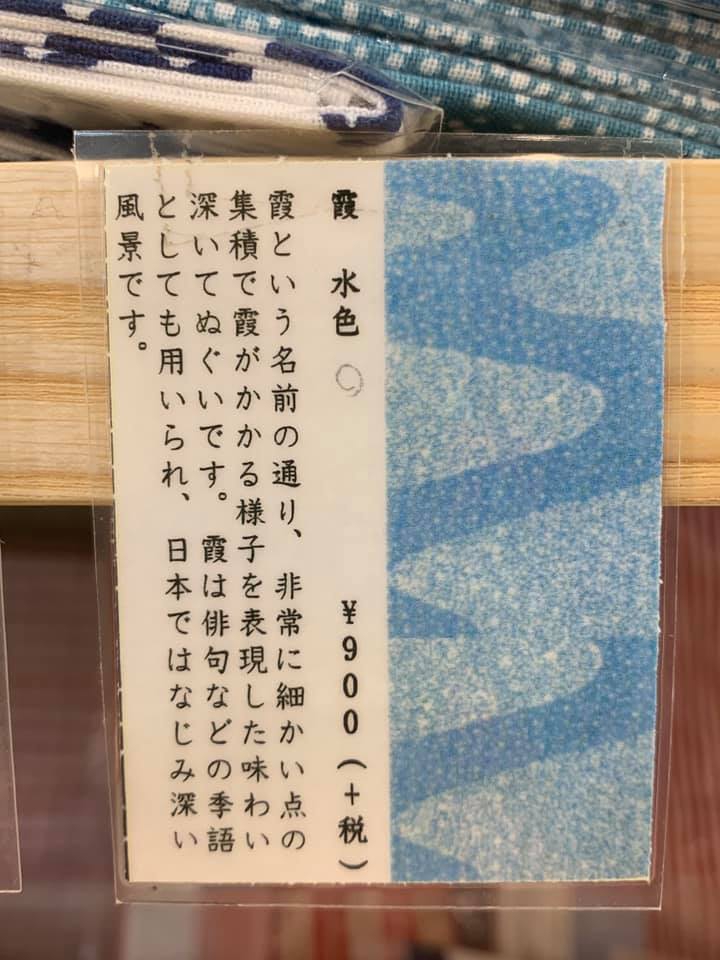 霞　水色　¥900(+税)
霞という名前の通り、非常に細かい点の
集積で霞がかかる様子を表現した味わい
深いてぬぐいです。霞は俳句などの季語
としても用いられ、日本ではなじみ深い
風景です。